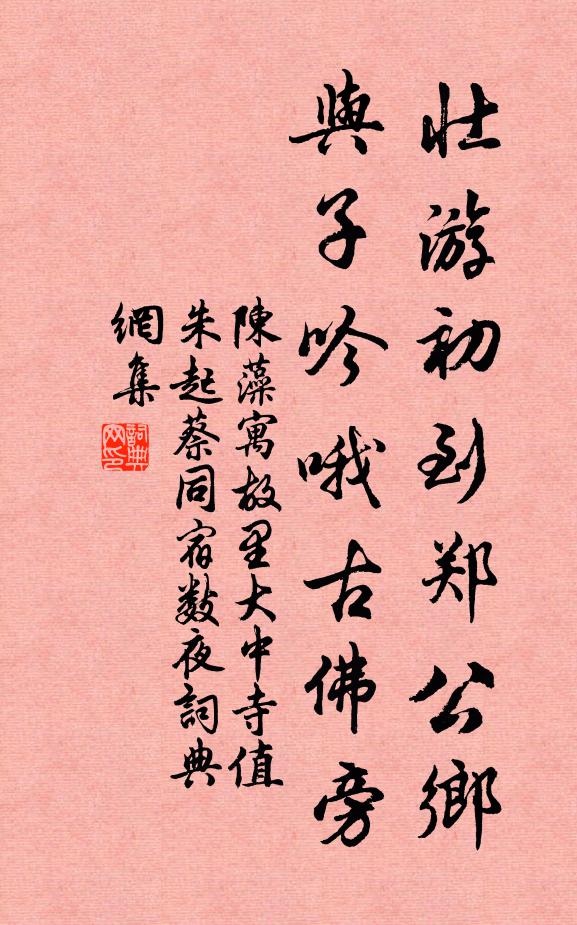 壮游初到郑公鄉
與子吟哦古佛旁
陳藻寓故里大中寺值
朱起蔡同宿数夜詞典
網集
詞典
网印